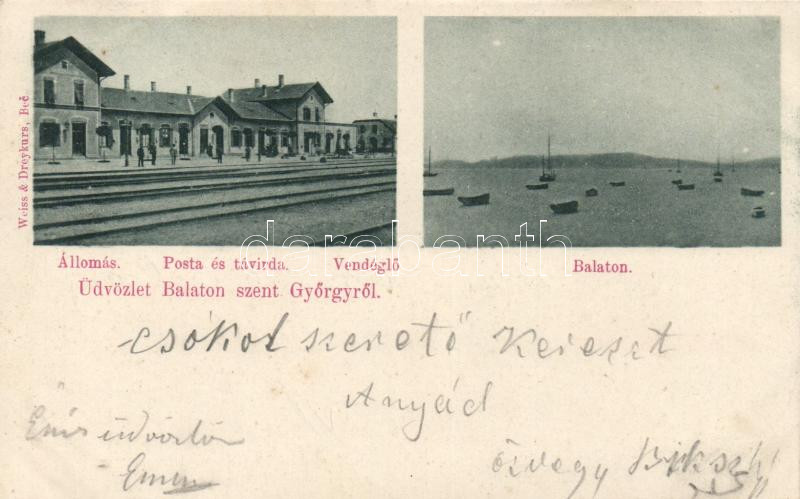 Weiss & Dreykurs, Becs
Állomás. Posta és távirda. Vendéglő Balaton.
darabanth
Üdvözlet Balaton szent Györgyről.
csókol szerető Kereszt
Anyád
Én is üdvözlöm
özvegy